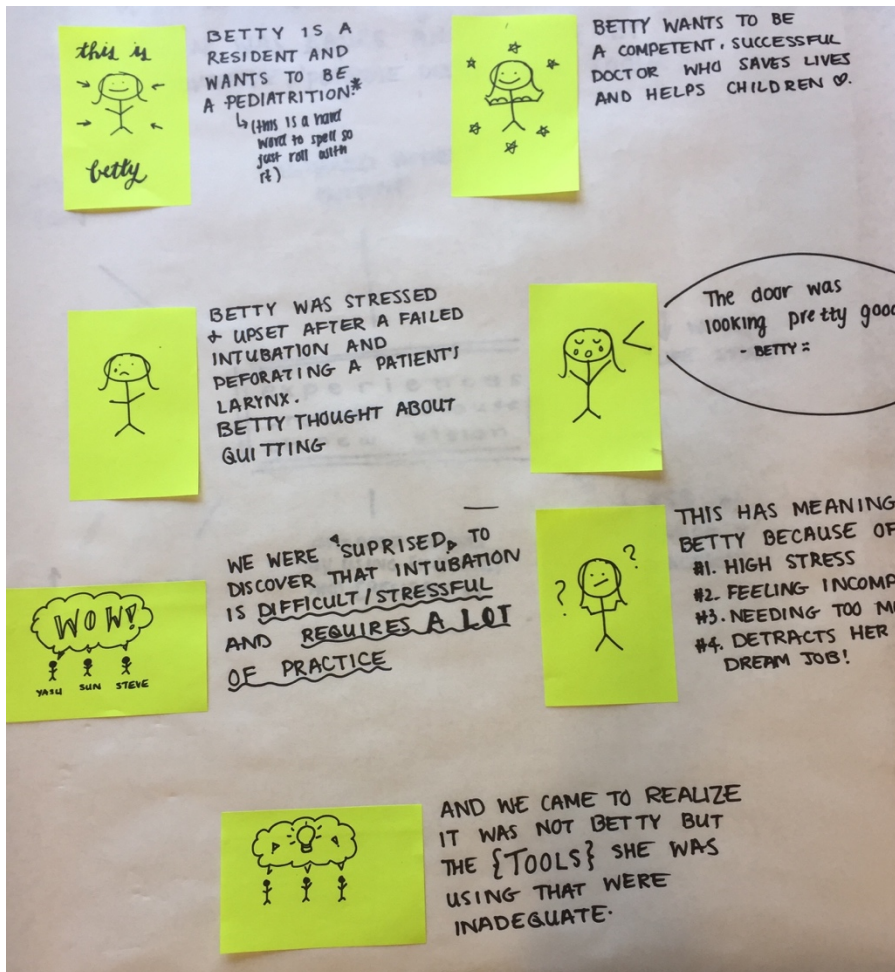 this is
betty
BETTY IS A
RESIDENT AND
WANTS TO BE
A PEDIATRITION.*
↳ (this is a hard
word to spell so
just roll with
it)
BETTY WANTS TO BE
A COMPETENT, SUCCESSFUL
DOCTOR WHO SAVES LIVES
AND HELPS CHILDREN ♡.
BETTY WAS STRESSED
+ UPSET AFTER A FAILED
INTUBATION AND
PEFORATING A PATIENT'S
LARYNX.
BETTY THOUGHT ABOUT
QUITTING
The door was
looking pretty good
- BETTY
WOW!
YASU SUN STEVE
WE WERE "SUPRISED" TO
DISCOVER THAT INTUBATION
IS DIFFICULT/STRESSFUL
AND REQUIRES A LOT
OF PRACTICE
? ?
THIS HAS MEANING
BETTY BECAUSE OF
#1. HIGH STRESS
#2. FEELING
#3. NEEDING TOO
#4. DETRACTS HER
DREAM JOB!
AND WE CAME TO REALIZE
IT WAS NOT BETTY BUT
THE {TOOLS} SHE WAS
USING THAT WERE
INADEQUATE.